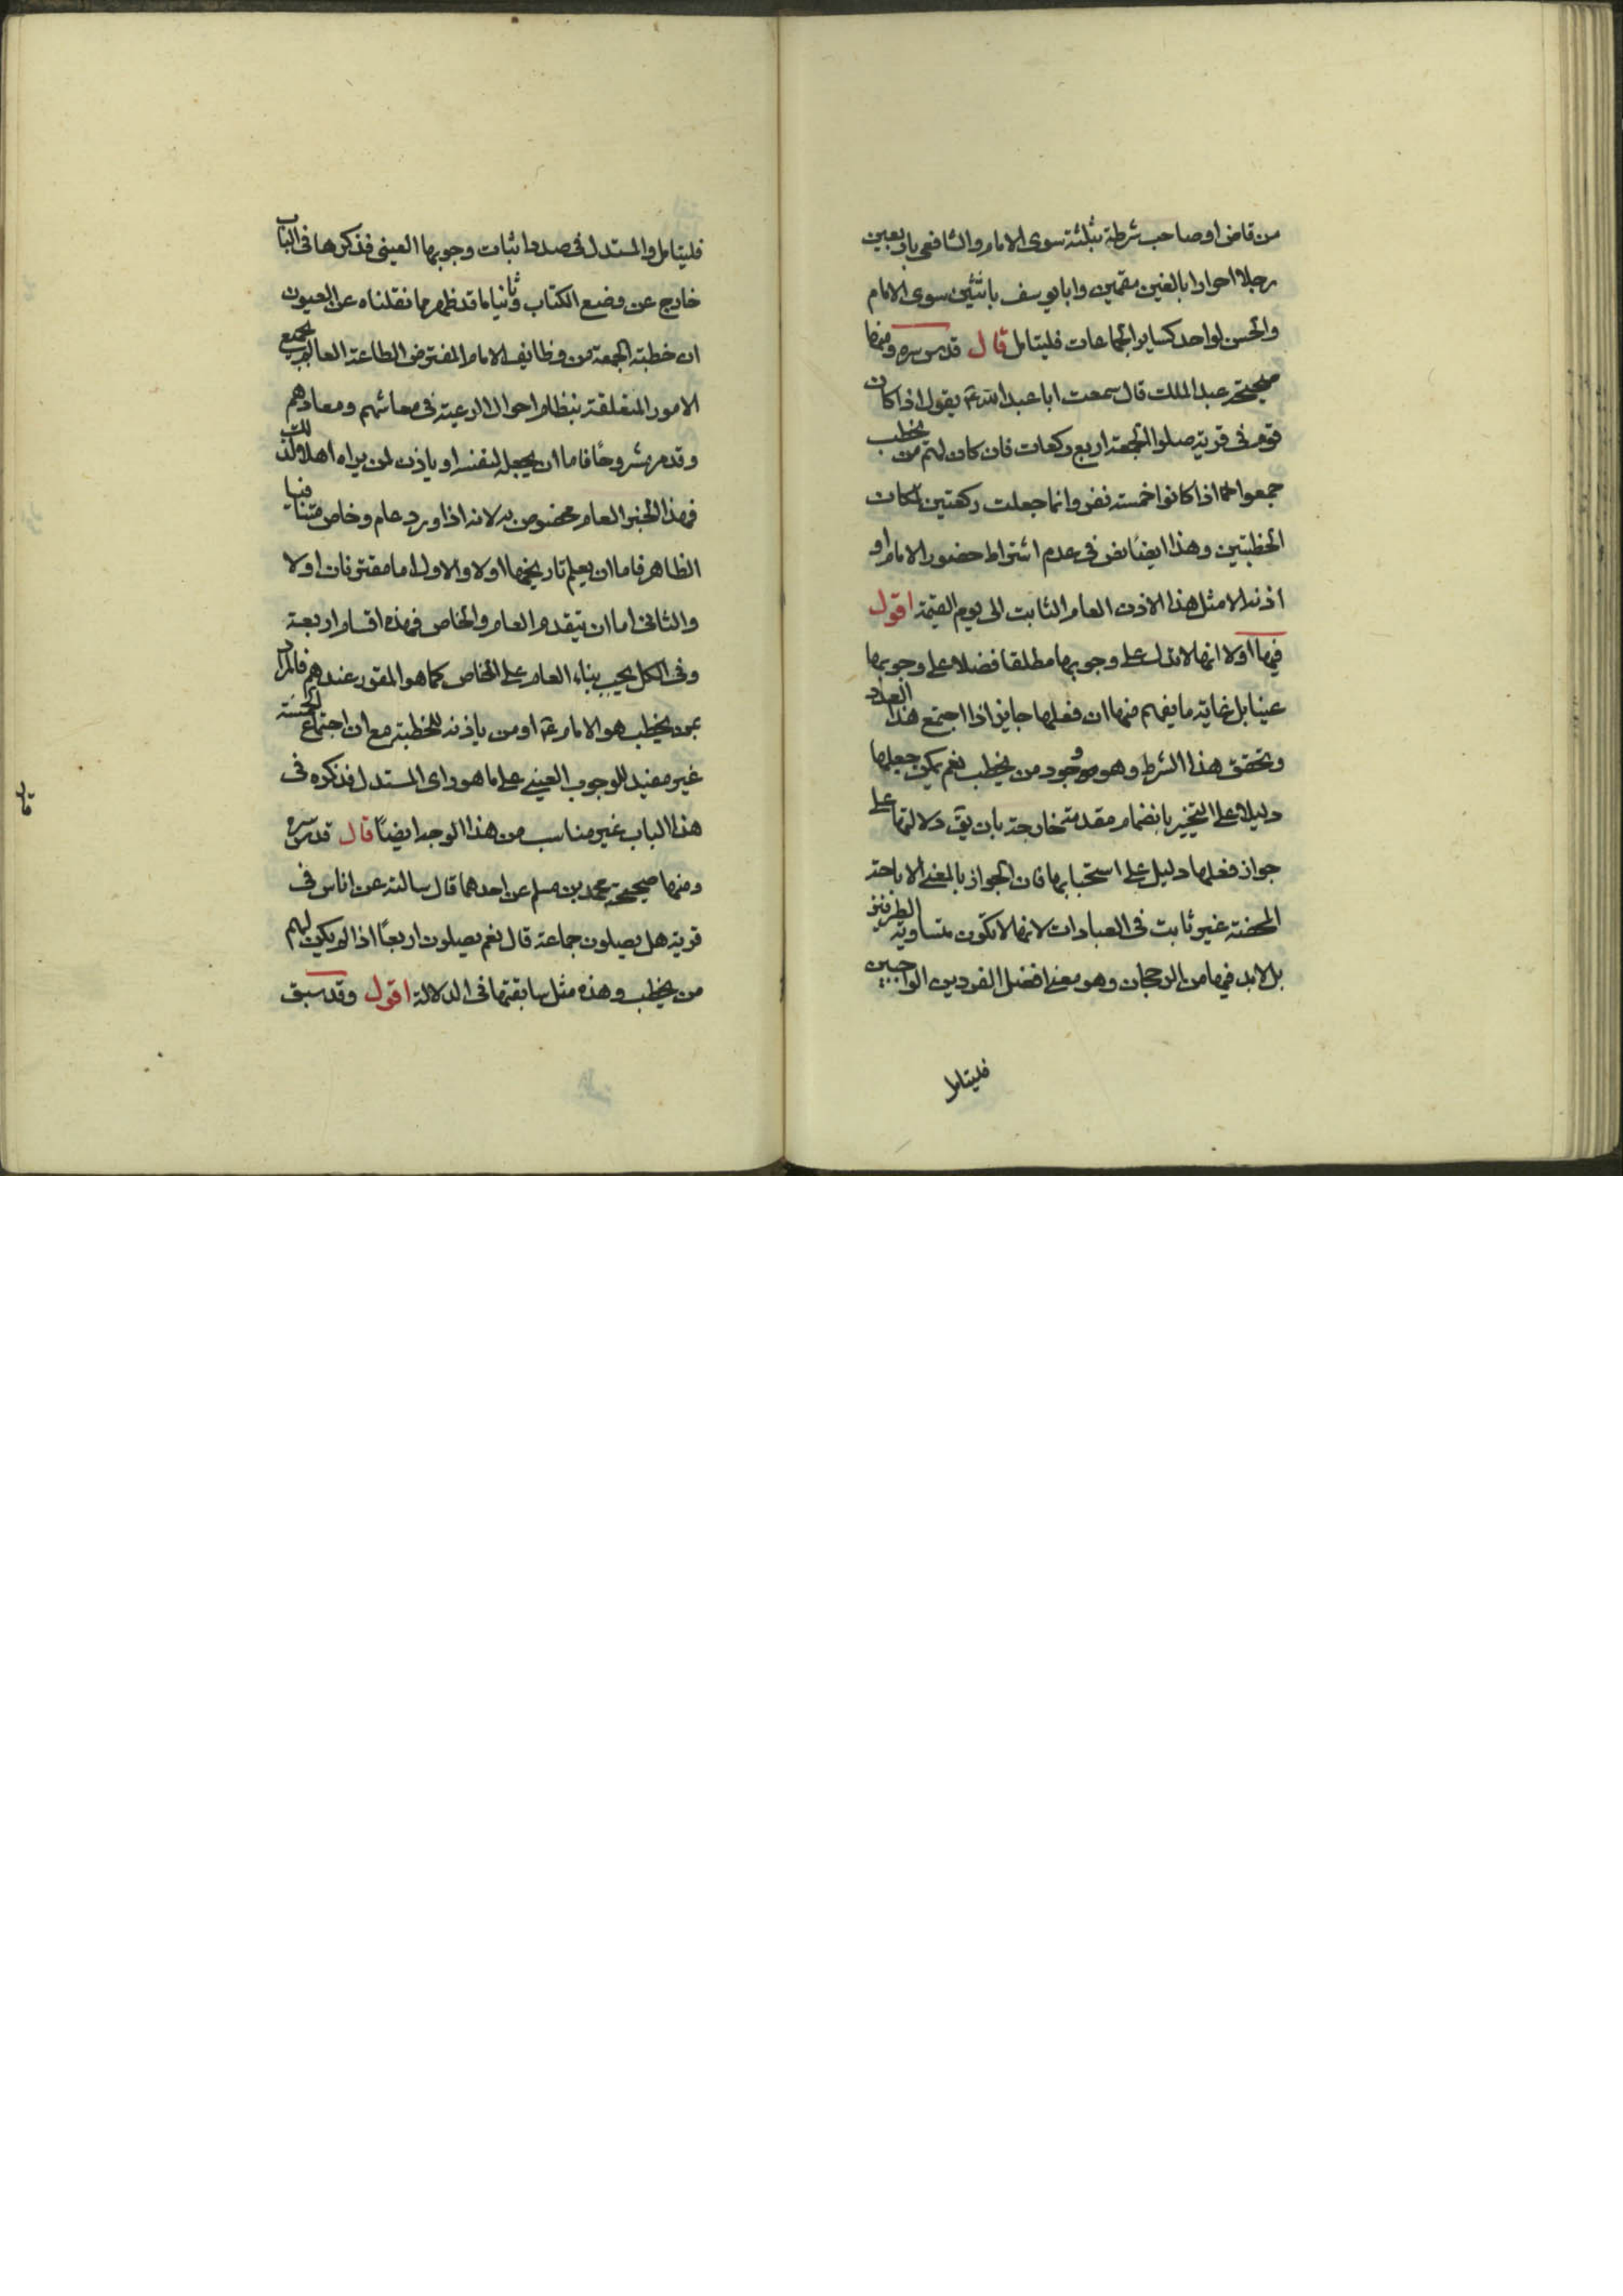 من قاض او صاحب شرطة بثلثة سوى الامام والشافعى باربعين
رجلا احرارا بالغين مقيمين وابا يوسف باثنين سوى الامام
والحسن لواحد كساير الجماعات فليتامل قال قدس سره ومنها
صحيحة عبد الملك قال سمعت ابا عبد الله ع يقول اذا كان
قوم فى قرية صلوا الجمعة اربع ركعات فان كان لهم من يخطب
جمعوا لها اذا كانوا خمسة نفر وانما جعلت ركعتين لمكان
الخطبتين وهذا ايضا نص فى عدم اشتراط حضور الامام او
اذنه الا مثل هذا الاذن العام الثابت الى يوم القيمة اقول
فيها اولا انها لا تدل على وجوبها مطلقا فضلا على وجوبها
عينا بل غاية ما يفهم منها ان فعلها جايز اذا اجتمع هذا العدد
وتحقق هذا الشرط وهو وجود من يخطب نعم يمكن جعلها
دليلا على التخيير بانضمام مقدمة خارجة بان يق دلالتها على
جواز فعلها دليل على استحبابها فان الجواز بالمعنى الاباحة
المحضة غير ثابت فى العبادات لانها لا تكون متساوية الطرفين
بل لا بد فيها من الرجحان وهو معنى افضل الفردين الواجبين
فليتامل
فليتامل والمستدل فى صدد اثبات وجوبها العينى فذكرها فى الباب
خارج عن وضع الكتاب وثانيا ما قد ظهر مما نقلناه عن العيون
ان خطبة الجمعة من وظايف الامام المفترض الطاعة العالم بجميع
الامور المتعلقة بنظام احوال الرعية فى معاشهم ومعادهم
وقد مر مشروحًا فاما ان يجعل لنفسه او ياذن لمن يراه اهلا لذلك
فهذا الخبر العام مخصوص به لانه اذا ورد عام وخاص متنافيا
الظاهر فاما ان يعلم تاريخهما اولا والاول اما مقترنان اولا
والثانى اما ان يتقدم العام والخاص فهذه اقسام اربعة
وفى الكل يجب بناء العام على الخاص كما هو المقرر عندهم فالمراد
بمن يخطب هو الامام ع او من ياذنه للخطبة مع ان اجتماع الخمسة
غير مفيد للوجوب العينى على ما هو راى المستدل فذكره فى
هذا الباب غير مناسب من هذا الوجه ايضًا قال قدس سره
ومنها صحيحة محمد بن مسلم عن احدهما قال سالته عن اناس فى
قرية هل يصلون جماعة قال نعم يصلون اربعًا اذا لم يكن لهم
من يخطب وهذه مثل سابقتها فى الدلالة اقول وقد سبق